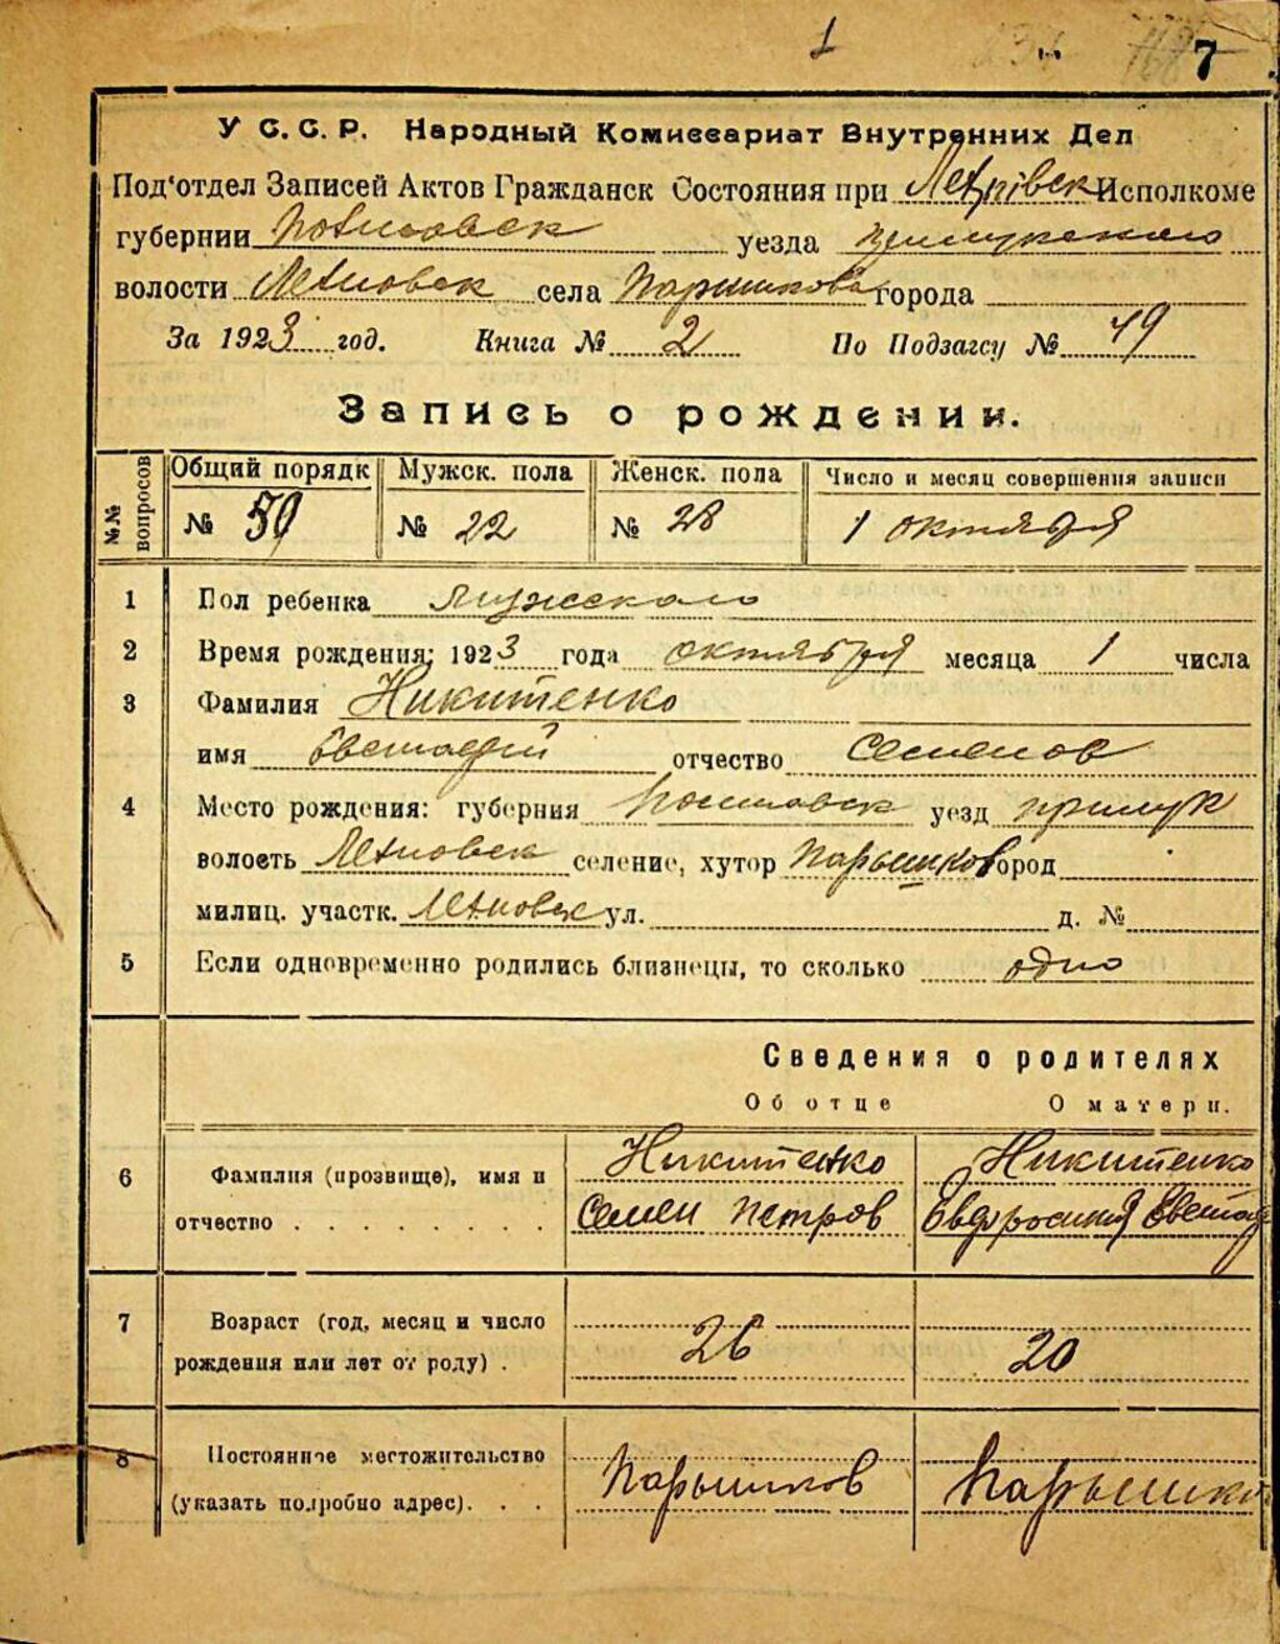 1
7
У С. С. Р. Народный Комиссариат Внутренних Дел
Под'отдел Записей Актов Гражданск Состояния при Исполкоме
губернии уезда
волости Летновск села города
За 1923 год. Книга № 2 По Подзагсу № 49
Запись о рождении.
№№ вопросов
Общий порядк Мужск. пола Женск. пола Число и месяц совершения записи
№ 50 № 22 № 28 1 октября
1 Пол ребенка мужского
2 Время рождения; 1923 года октября месяца 1 числа
3 Фамилия Никитенко
имя Евстафий отчество Семенов
4 Место рождения: губерния уезд прилук
волость Летновск селение, хутор Парышков город
милиц. участк. Летновск ул. д. №
5 Если одновременно родились близнецы, то сколько одно
Сведения о родителях
Об отце О матери.
6 Фамилия (прозвище), имя и Никитенко Никитенко
отчество . . . . . . . . Семен Петров Евфросиния Евстаф
7 Возраст (год, месяц и число
рождения или лет от роду) . 26 20
8 Постоянное местожительство
(указать подробно адрес). . . Парышков Парышков